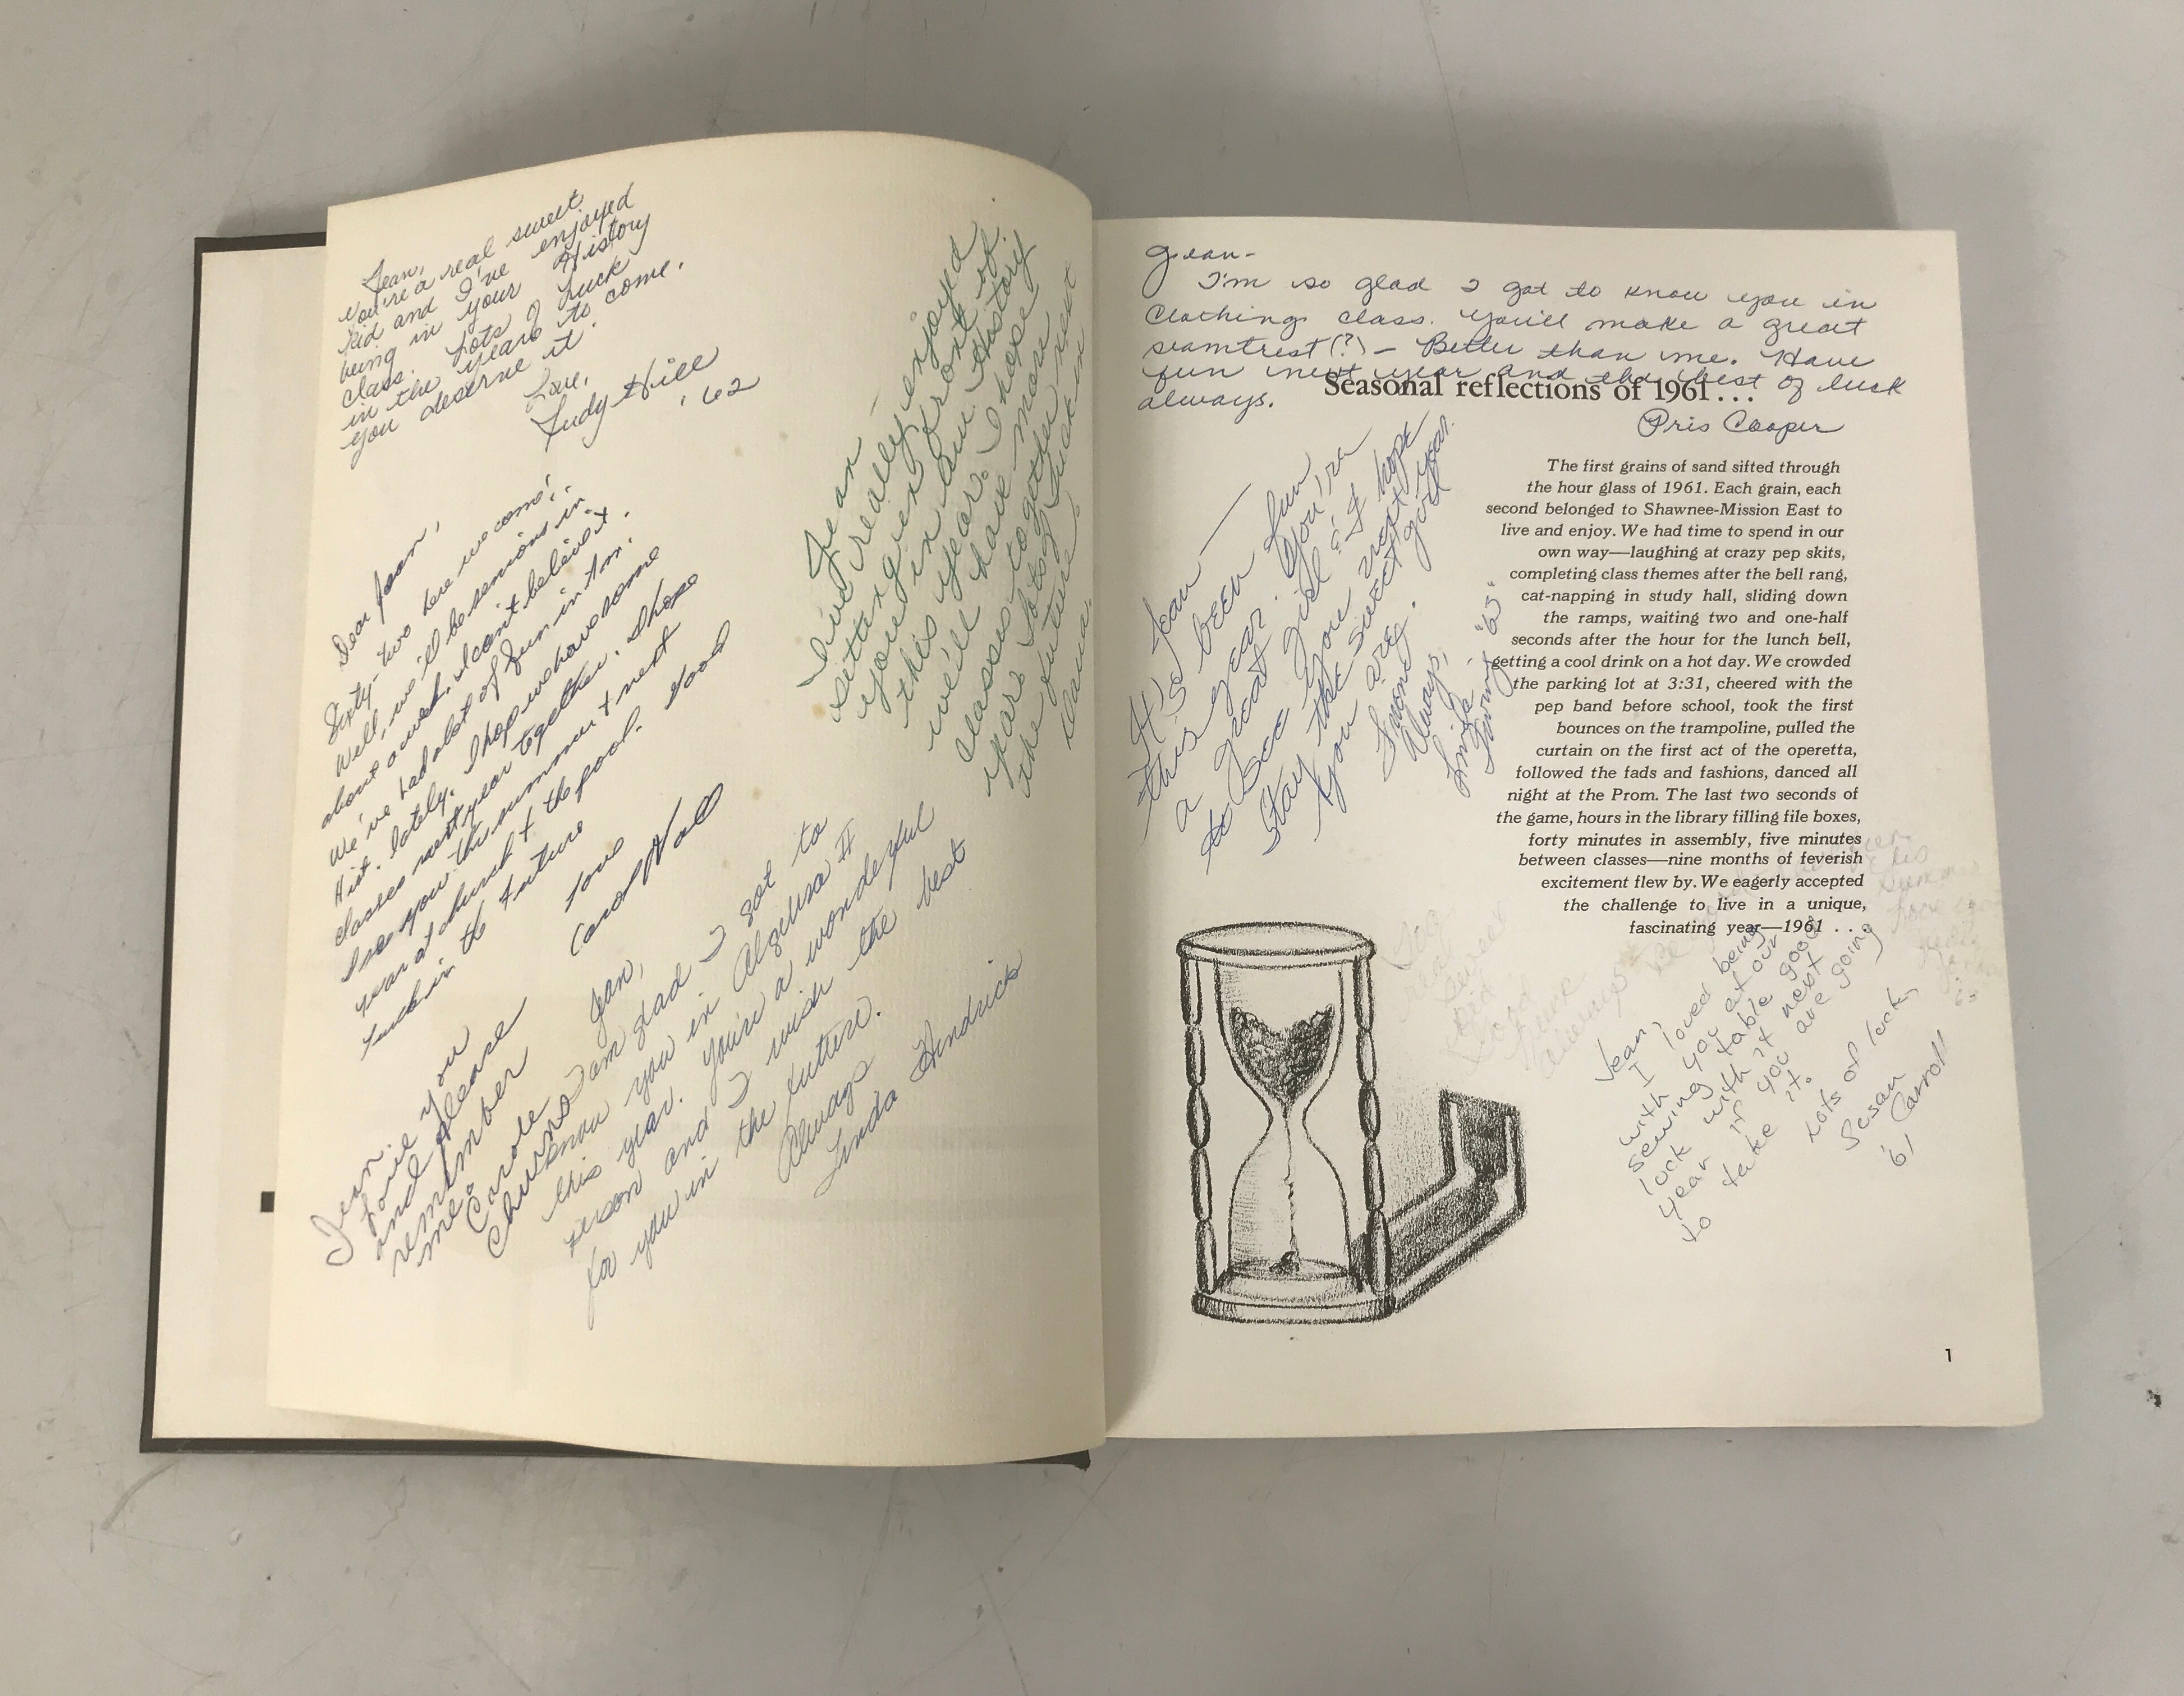 Jean,
You're a real sweet
kid and I've enjoyed
being in your History
class. Lots of Luck
in the years to come,
you deserve it.
Love,
Judy Hill
'62
Dear Jean,
Sixty-two here we come!
Well, we'll be seniors in
about a week. I can't believe it.
We've had a lot of fun in Am.
Hist. lately. I hope we have some
classes next year together. I hope
I see you this summer & next
year at church & the pool. Good
luck in the future
Love
Carol Hall
Jean
I've really enjoyed
sitting in front of
you in Am. History
this year. I hope
we'll have more
classes together next
year. Lots of luck in
the future.
Jean,
I am glad I got to
know you in Algebra II
this year. You're a wonderful
person and I wish the best
for you in the future.
Always
Linda Hendricks
Jean.
Love you
and please
remember
me.
Carole
Churns
Jean-
I'm so glad I got to know you in
Clothing class. You'll make a great
seamtrest(?) - Better than me. Have
fun next year and the best of luck
always.
Pris Cooper
Seasonal reflections of 1961...
The first grains of sand sifted through
the hour glass of 1961. Each grain, each
second belonged to Shawnee-Mission East to
live and enjoy. We had time to spend in our
own way—laughing at crazy pep skits,
completing class themes after the bell rang,
cat-napping in study hall, sliding down
the ramps, waiting two and one-half
seconds after the hour for the lunch bell,
getting a cool drink on a hot day. We crowded
the parking lot at 3:31, cheered with the
pep band before school, took the first
bounces on the trampoline, pulled the
curtain on the first act of the operetta,
followed the fads and fashions, danced all
night at the Prom. The last two seconds of
the game, hours in the library filling file boxes,
forty minutes in assembly, five minutes
between classes—nine months of feverish
excitement flew by. We eagerly accepted
the challenge to live in a unique,
fascinating year—1961 . . .
Jean—
It's been fun
this year. You're
a great girl & I hope
to see you next year.
Stay the sweet girl
you are.
Always,
"63"
Jean,
I loved being
with you at our
sewing table good
luck with it next
year if you are going
to take it.
Lots of luck,
Susan
Carroll
'61
1